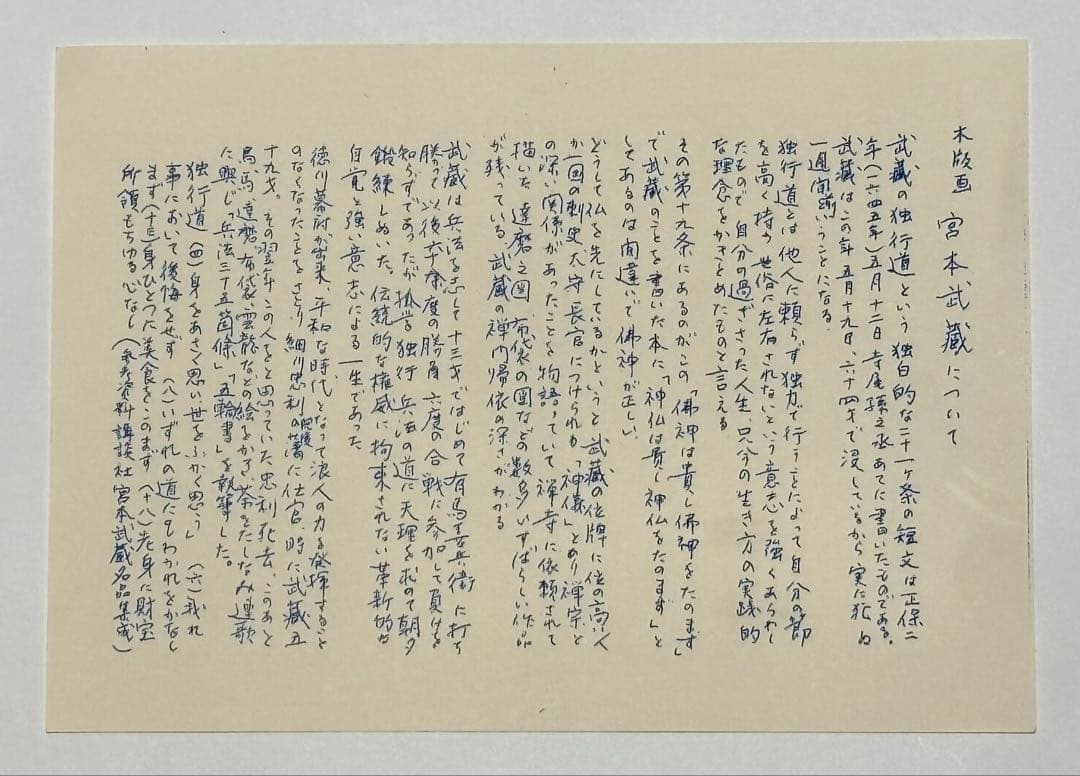 木版画 宮本武蔵について
武蔵の独行道という独白的な二十一ヶ条の短文は正保二
年(一六四五年)五月十二日寺尾孫之丞あてに書いたものである。
武蔵はこの年五月十九日、六十四才で没しているから実に死ぬ
一週間前いうことになる。
独行道とは他人に頼らず独力で行うことによって自分の節
を高く持ち世俗に左右されないという意志を強くあらわし
たもので自分の過ぎさった人生兄分の生き方の実践的
な理念をかきとめたものと言える
その第十九条にあるのがこの「佛神は貴し佛神をたのまず」
で武蔵のことを書いた本に「神仏は貴し神仏をたのまず」と
してあるのは間違いで佛神が正しい。
どうして仏を先にしているかというと武蔵の位牌に位の高い人
か一国の刺史、大守、長官につけられる「神儀」とあり禅宗と
の深い関係があったことを物語っていて禅寺に依頼されて
描いた達磨之図、布袋の図などの数多いすばらしい作品
が残っている。武蔵の禅門帰依の深さがわかる
武蔵は兵法を志して十三才ではじめて有馬喜兵衛に打ち
勝って以後六十余度の勝負六度の合戦に参加して負ける
知らずであったが孤学独行兵法の道に天理を求めて朝夕
鍛練しぬいた。伝統的な権威に拘束されない革新的な
自覚と強い意志による一生であった
徳川幕府が出来、平和な時代となって浪人の力を発揮すること
のなくなったことをさとり細川忠利の肥後藩に仕官、時に武蔵五
十九才。その翌年この人をと思っていた忠利死去、このあと
鳥、馬、達磨、布袋、雲龍などの絵をかき、茶をたしなみ連歌
に興じ「兵法三十五箇條」「五輪書」を執筆した。
独行道(四)身をあさく思い世をふかく思う」 (六)我れ
事において後悔をせず (八)いずれの道にもわかれをかなし
まず(十三)身ひとつに美食をこのまず(十八)老身に財宝
所領もちゆる心なし (参考資料講談社宮本武蔵名品集成)